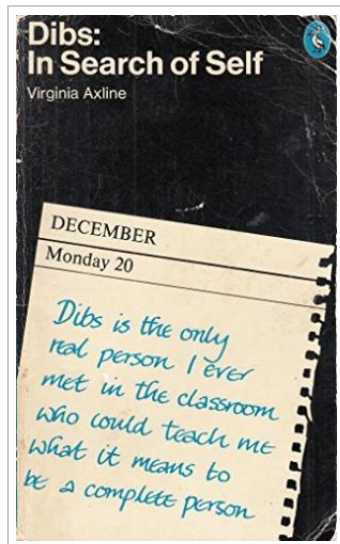 Dibs:
In Search of Self
Virginia Axline
DECEMBER
Monday 20
Dibs is the only
real person I ever
met in the classroom
who could teach me
what it means to
be a complete person